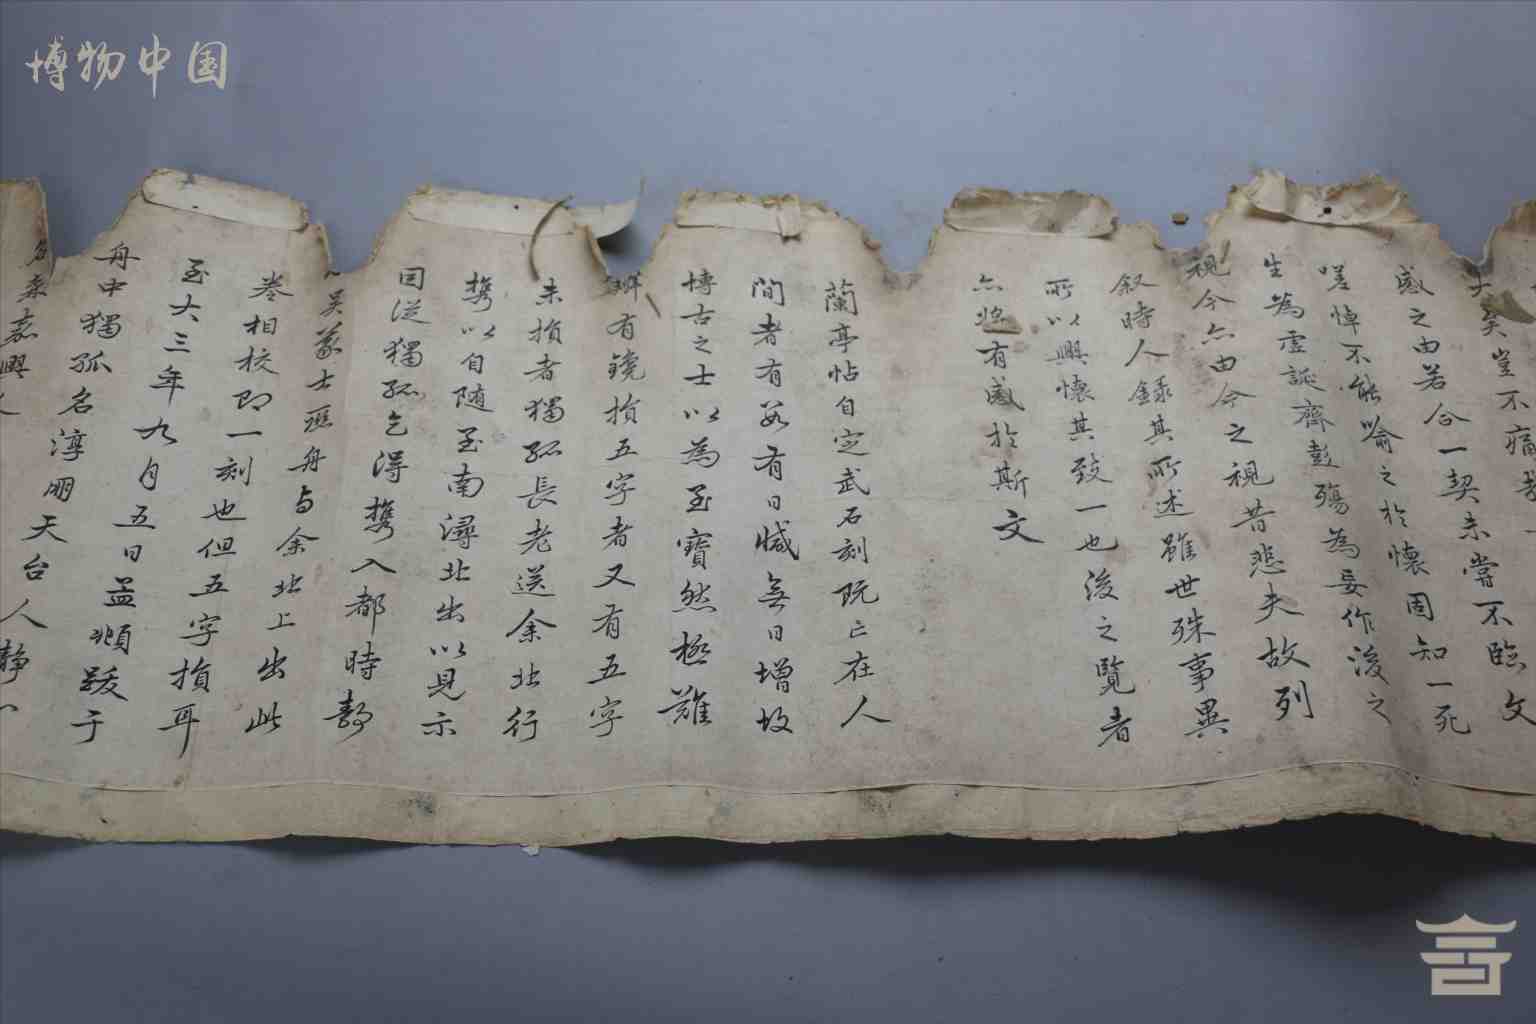 矣豈不痛哉
感之由若合一契未嘗不臨文
嗟悼不能喻之於懷固知一死
生為虛誕齊彭殤為妄作後之
視今亦由今之視昔悲夫故列
叙時人錄其所述雖世殊事異
所以興懷其致一也後之覽者
亦將有感於斯文
蘭亭帖自定武石刻既亡在人
間者有數有日減無日增故
博古之士以為至寶然極難
辨有鐫損五字者又有五字
未損者獨孤長老送余北行
攜以自隨至南潯北出以見示
因從獨孤乞得攜入都時靜
吳 士 舟與余北上出此
卷相校即一刻也但五字損耳
至大三年九月五日孟頫跋于
舟中獨孤名淳朋天台人靜心
名森嘉興人
博物中国